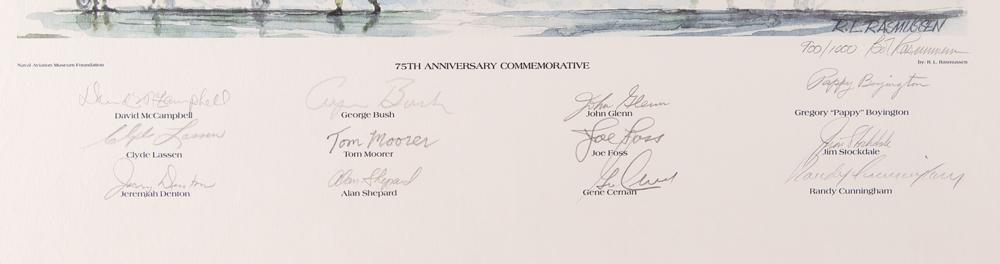 R.L. RASMUSSEN
900/1000 Bob Rasmussen
Naval Aviation Museum Foundation
75TH ANNIVERSARY COMMEMORATIVE
by: R. L. Rasmussen
David McCampbell
David McCampbell
George Bush
George Bush
John Glenn
John Glenn
Pappy Boyington
Gregory "Pappy" Boyington
Clyde Lassen
Clyde Lassen
Tom Moorer
Tom Moorer
Joe Foss
Joe Foss
Jim Stockdale
Jim Stockdale
Jerry Denton
Jeremiah Denton
Alan Shepard
Alan Shepard
Gene Cernan
Gene Cernan
Randy Cunningham
Randy Cunningham